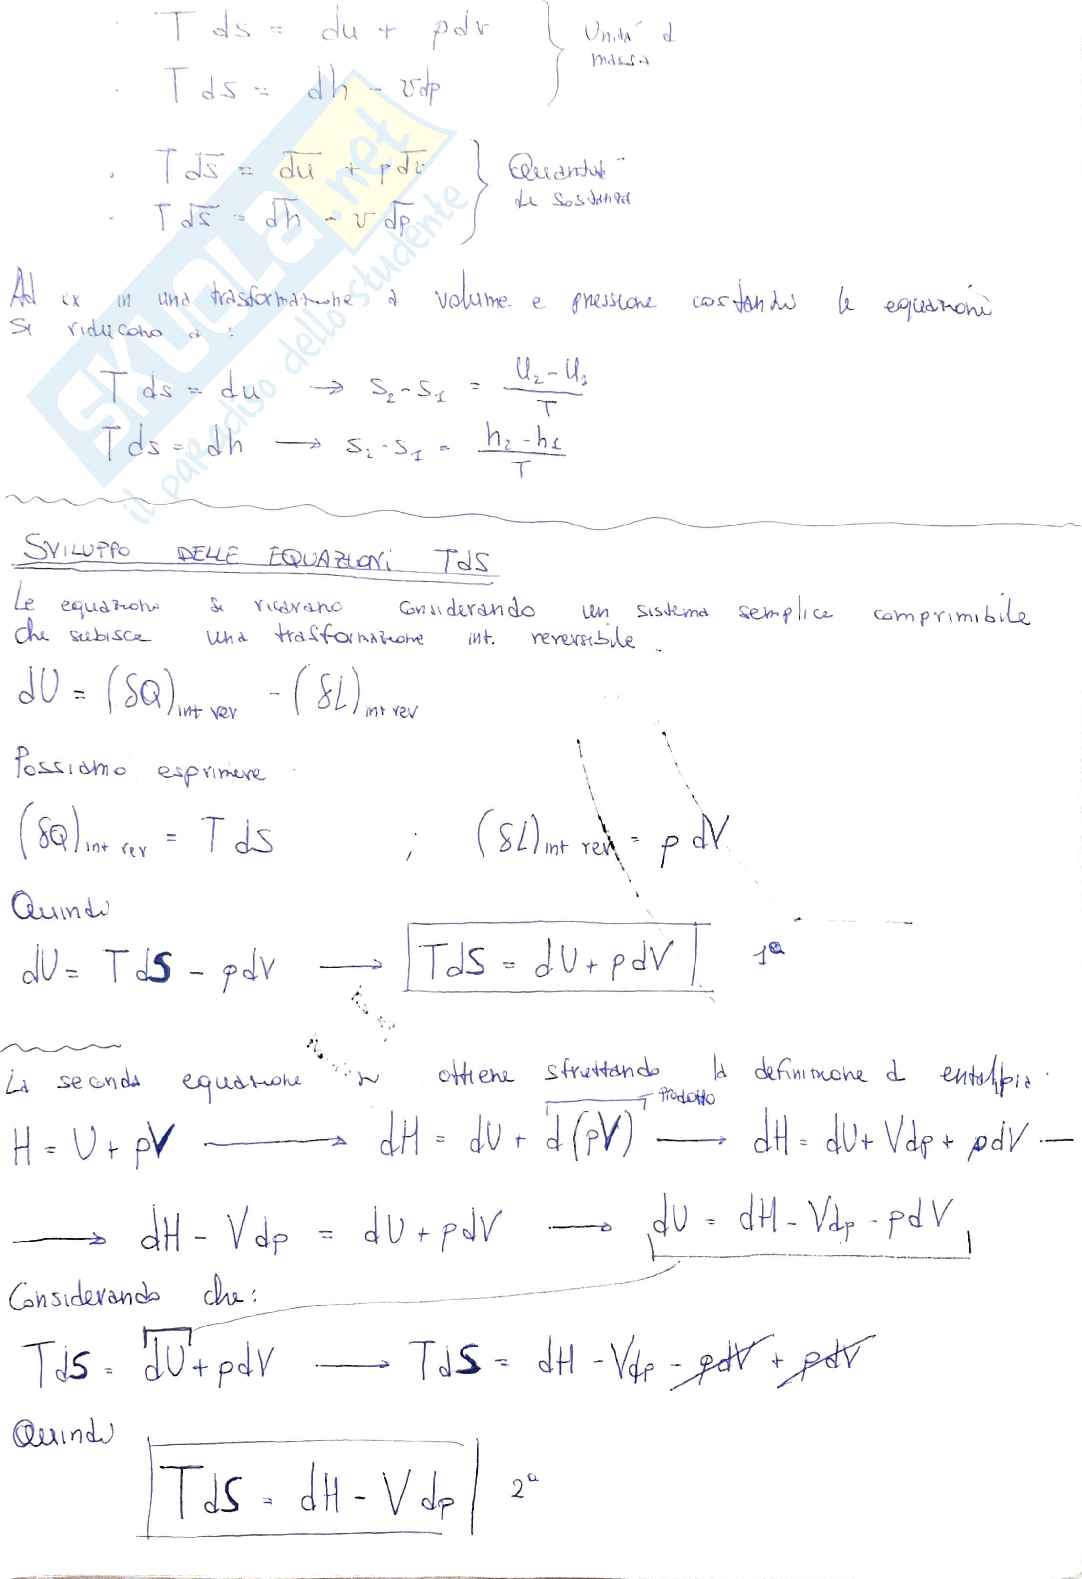 T ds = du + pdv } Unità di massa
T ds = dh - vdp
T ds̅ = du̅ + pdv̅ } Quantità di sostanza
T ds̅ = dh̅ - v dp̅
Ad ex in una trasformazione a volume e pressione costante le equazioni
si riducono a :
T ds = du → s₂-s₁ = (u₂-u₁)/T
T ds = dh → s₂-s₁ = (h₂-h₁)/T
SVILUPPO DELLE EQUAZIONI TdS
Le equazioni si ricavano considerando un sistema semplice comprimibile
che subisce una trasformazione int. reversibile.
dU = (δQ)int rev - (δL)int rev
Possiamo esprimere
(δQ)int rev = T dS ; (δL)int rev = p dV
Quindi
dU = T dS - pdV → TdS = dU + pdV 1ª
La seconda equazione si ottiene sfruttando la definizione di entalpia.
Prodotto
H = U + pV → dH = dU + d(pV) → dH = dU + Vdp + pdV —
→ dH - Vdp = dU + pdV → dU = dH - Vdp - pdV
Considerando che:
TdS = dU + pdV → TdS = dH - Vdp - pdV + pdV
Quindi
TdS = dH - Vdp 2ª
SKUOLA.net
il paradiso dello studente